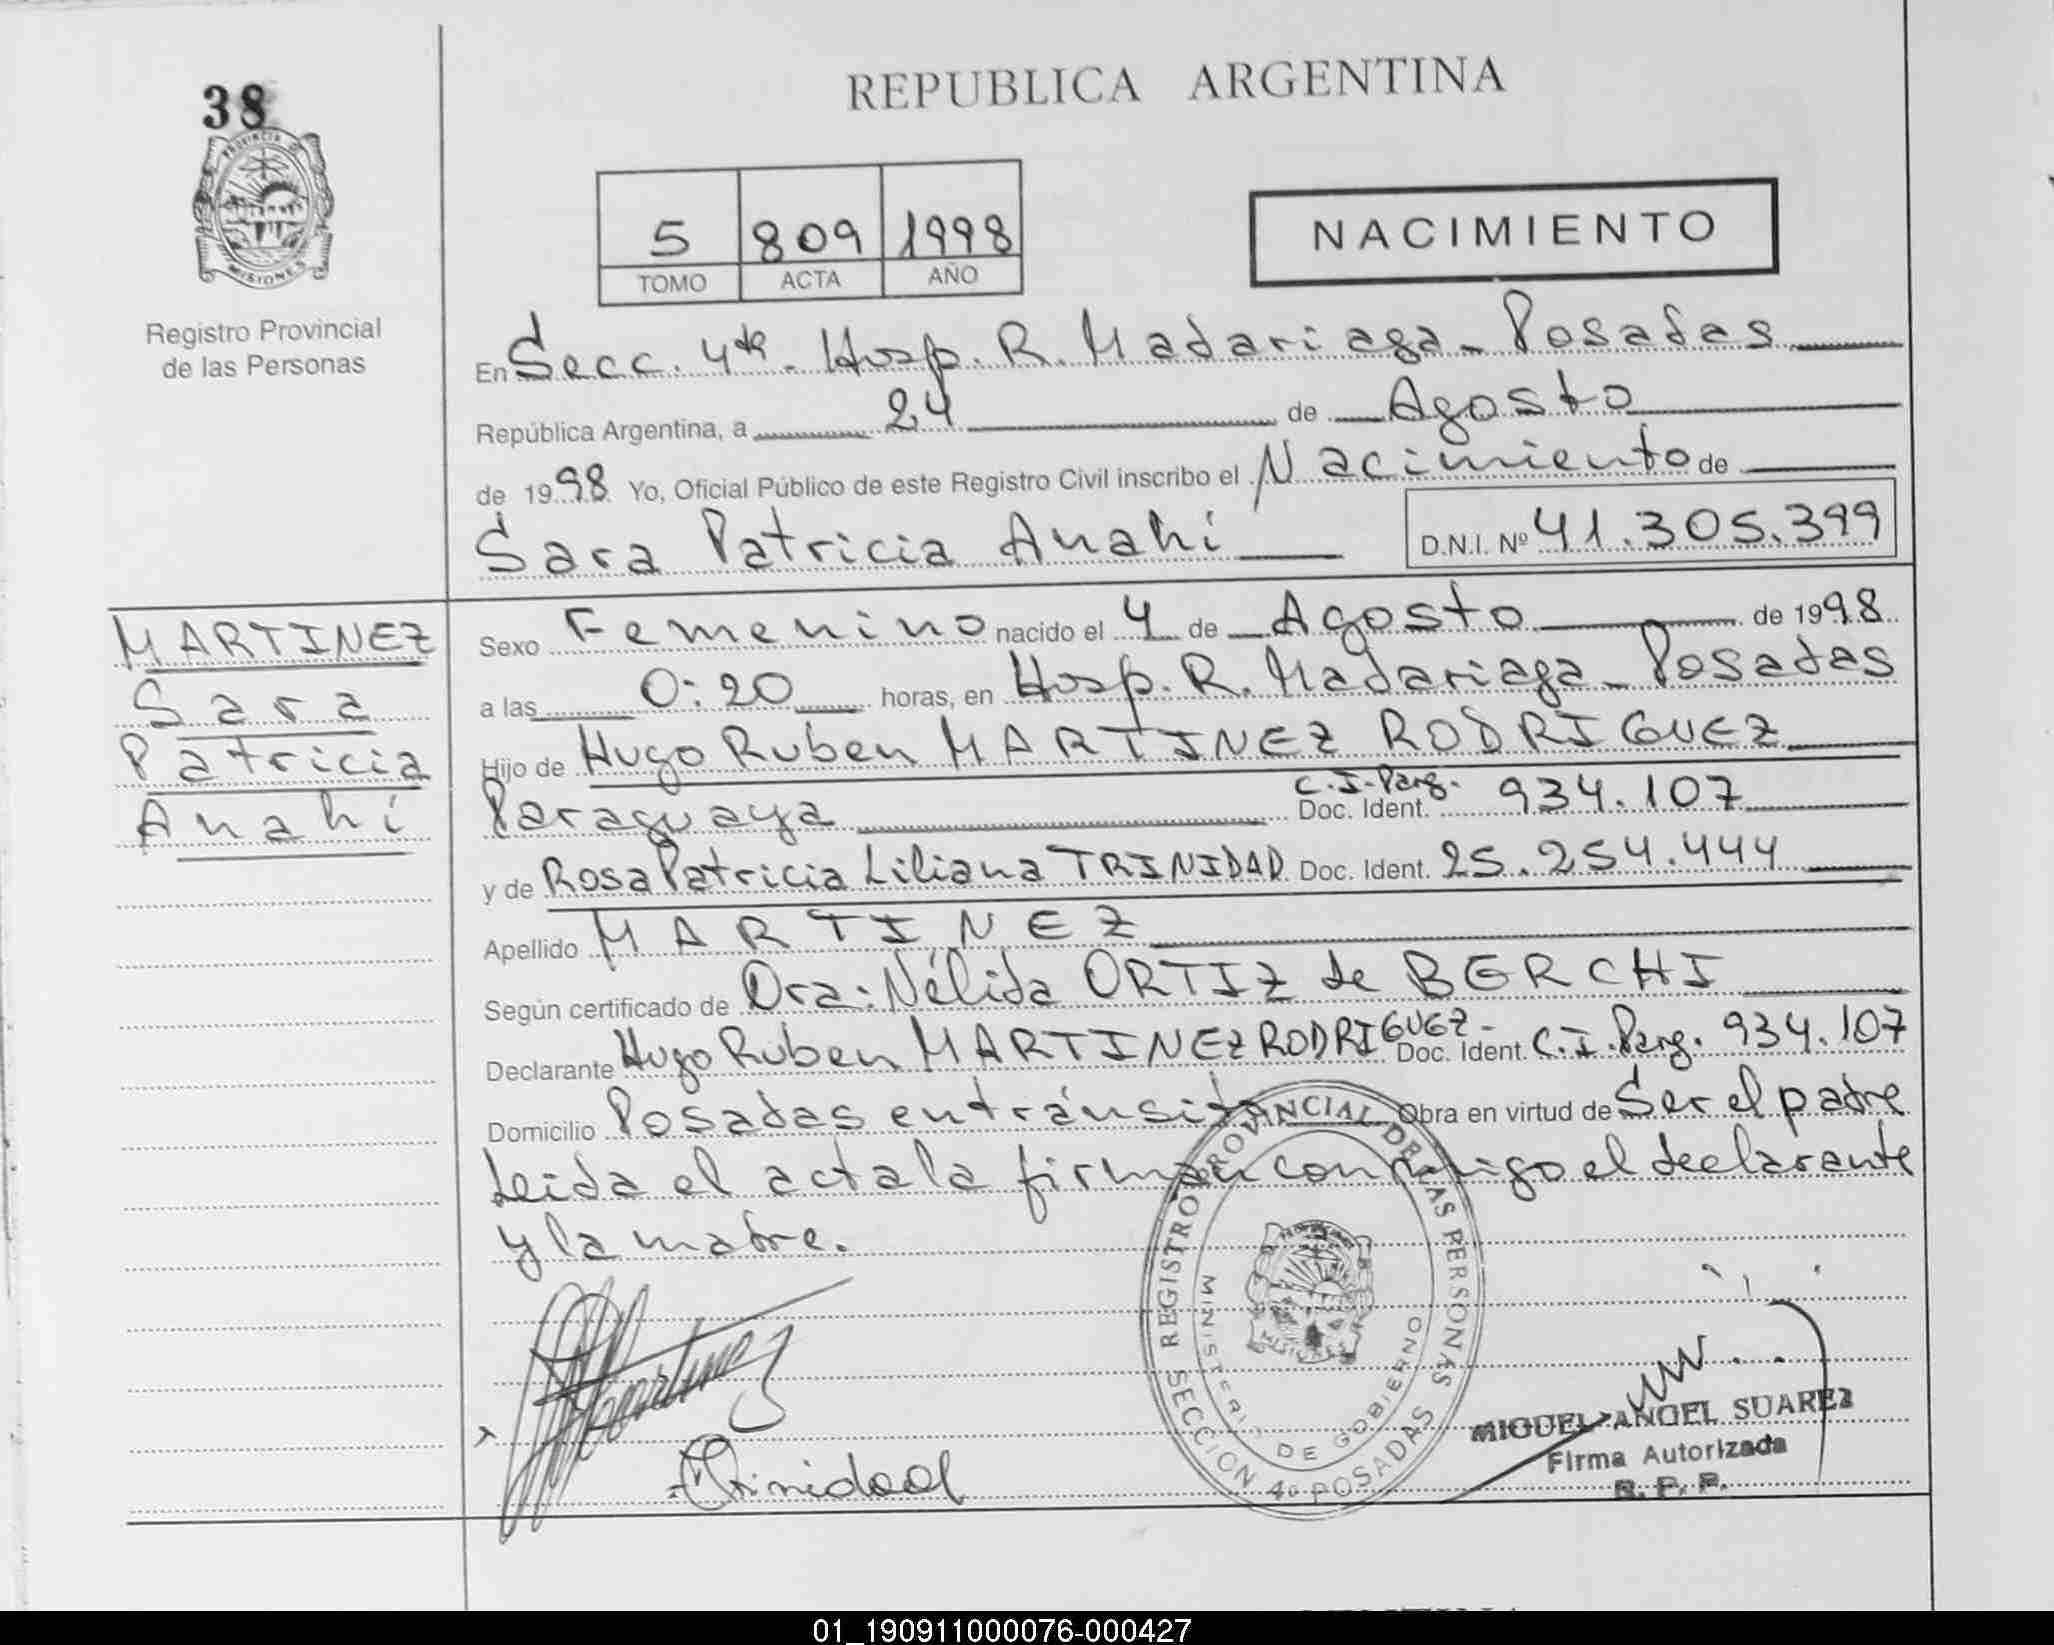 38
REPUBLICA ARGENTINA
PROVINCIA DE
MISIONES
5 809 1998
TOMO ACTA AÑO
NACIMIENTO
Registro Provincial
de las Personas
En Secc. 4ta. Hosp. R. Madariaga - Posadas
República Argentina, a 24 de Agosto
de 1998 Yo, Oficial Público de este Registro Civil inscribo el Nacimiento de
Sara Patricia Anahí D.N.I. Nº 41.305.399
MARTINEZ
Sara
Patricia
Anahí
Sexo Femenino nacido el 4 de Agosto de 1998
a las 0:20 horas, en Hosp. R. Madariaga - Posadas
Hijo de Hugo Ruben MARTINEZ RODRIGUEZ
Paraguaya C.I. Parg. Doc. Ident. 934.107
y de Rosa Patricia Liliana TRINIDAD Doc. Ident. 25.254.444
Apellido MARTINEZ
Según certificado de Dra: Nélida ORTIZ de BERCHI
Declarante Hugo Ruben MARTINEZ RODRIGUEZ - Doc. Ident. C.I. Parg. 934.107
Domicilio Posadas en tránsito Obra en virtud de Ser el padre
Leida el acta la firman conmigo el declarante
y la madre.
REGISTRO PROVINCIAL DE LAS PERSONAS
MINISTERIO DE GOBIERNO
SECCION 4º POSADAS
Martinez
Trinidad
MIGUEL ANGEL SUAREZ
Firma Autorizada
R. P. P.
01_190911000076-000427